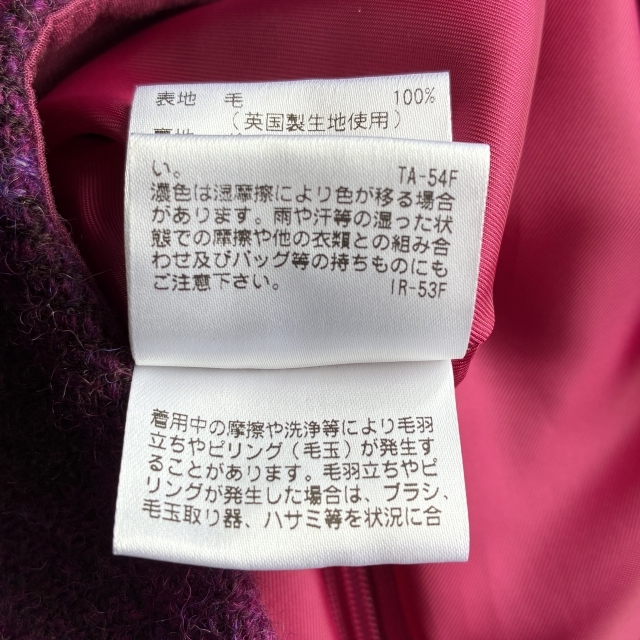 表地 毛 100%
(英国製生地使用)
い。 TA-54F
濃色は湿摩擦により色が移る場合
があります。雨や汗等の湿った状
態での摩擦や他の衣類との組み合
わせ及びバッグ等の持ちものにも
ご注意下さい。 IR-53F
着用中の摩擦や洗浄等により毛羽
立ちやピリング(毛玉)が発生す
ることがあります。毛羽立ちやピ
リングが発生した場合は、ブラシ、
毛玉取り器、ハサミ等を状況に合